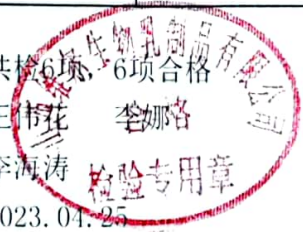 共检6项，6项合格
王伟花 李娜
李海涛
2023.04.25
生物乳制品有限公司
检验专用章